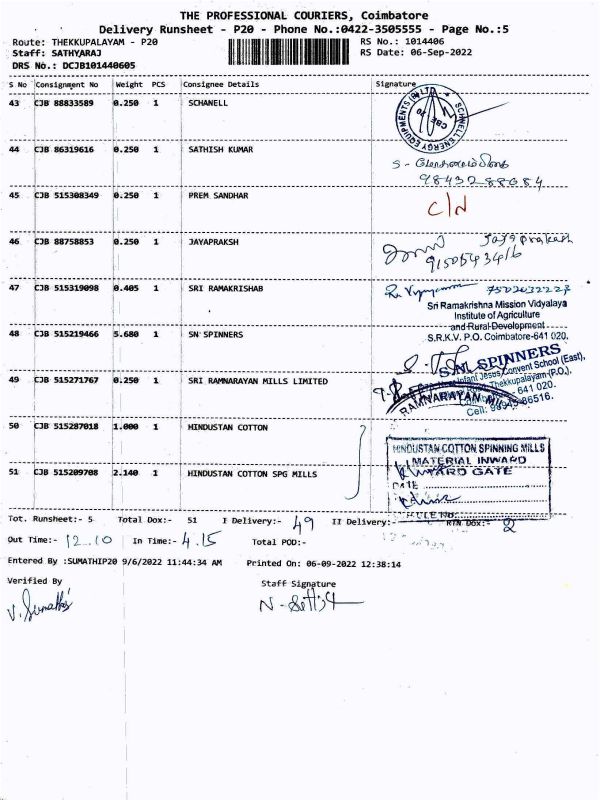 THE PROFESSIONAL COURIERS, Coimbatore
Delivery Runsheet - P20 - Phone No.:0422-3505555 - Page No.:5
Route: THEKKUPALAYAM - P20 RS No.: 1014406
Staff: SATHYARAJ RS Date: 06-Sep-2022
DRS No.: DCJB101440605
S No Consignment No Weight PCS Consignee Details Signature
43 CJB 88833589 0.250 1 SCHANELL
SCHNELL ENERGY EQUIPMENTS (P) LTD
44 CJB 86319616 0.250 1 SATHISH KUMAR
45 CJB 515308349 0.250 1 PREM SANDHAR C/N
46 CJB 88758853 0.250 1 JAYAPRAKSH Jayaprakash
9150543416
47 CJB 515319098 0.405 1 SRI RAMAKRISHAB 7502032223
Sri Ramakrishna Mission Vidyalaya
Institute of Agriculture
and Rural Development
S.R.K.V. P.O. Coimbatore-641 020.
48 CJB 515219466 5.680 1 SN SPINNERS
SPINNERS
Infant Jesus Convent School (East),
Thekkupalayam (P.O.),
641 020.
49 CJB 515271767 0.250 1 SRI RAMNARAYAN MILLS LIMITED
RAMNARAYAN MILLS
50 CJB 515287018 1.000 1 HINDUSTAN COTTON
HINDUSTAN COTTON SPINNING MILLS
MATERIAL INWARD
YARD GATE
DATE
51 CJB 515209708 2.140 1 HINDUSTAN COTTON SPG MILLS
Tot. Runsheet:- 5 Total Dox:- 51 I Delivery:- 49 II Delivery:- RTN Dox:- 2
Out Time:- 12.10 In Time:- 4.15 Total POD:-
Entered By :SUMATHIP20 9/6/2022 11:44:34 AM Printed On: 06-09-2022 12:38:14
Verified By Staff Signature
V. Sumathi